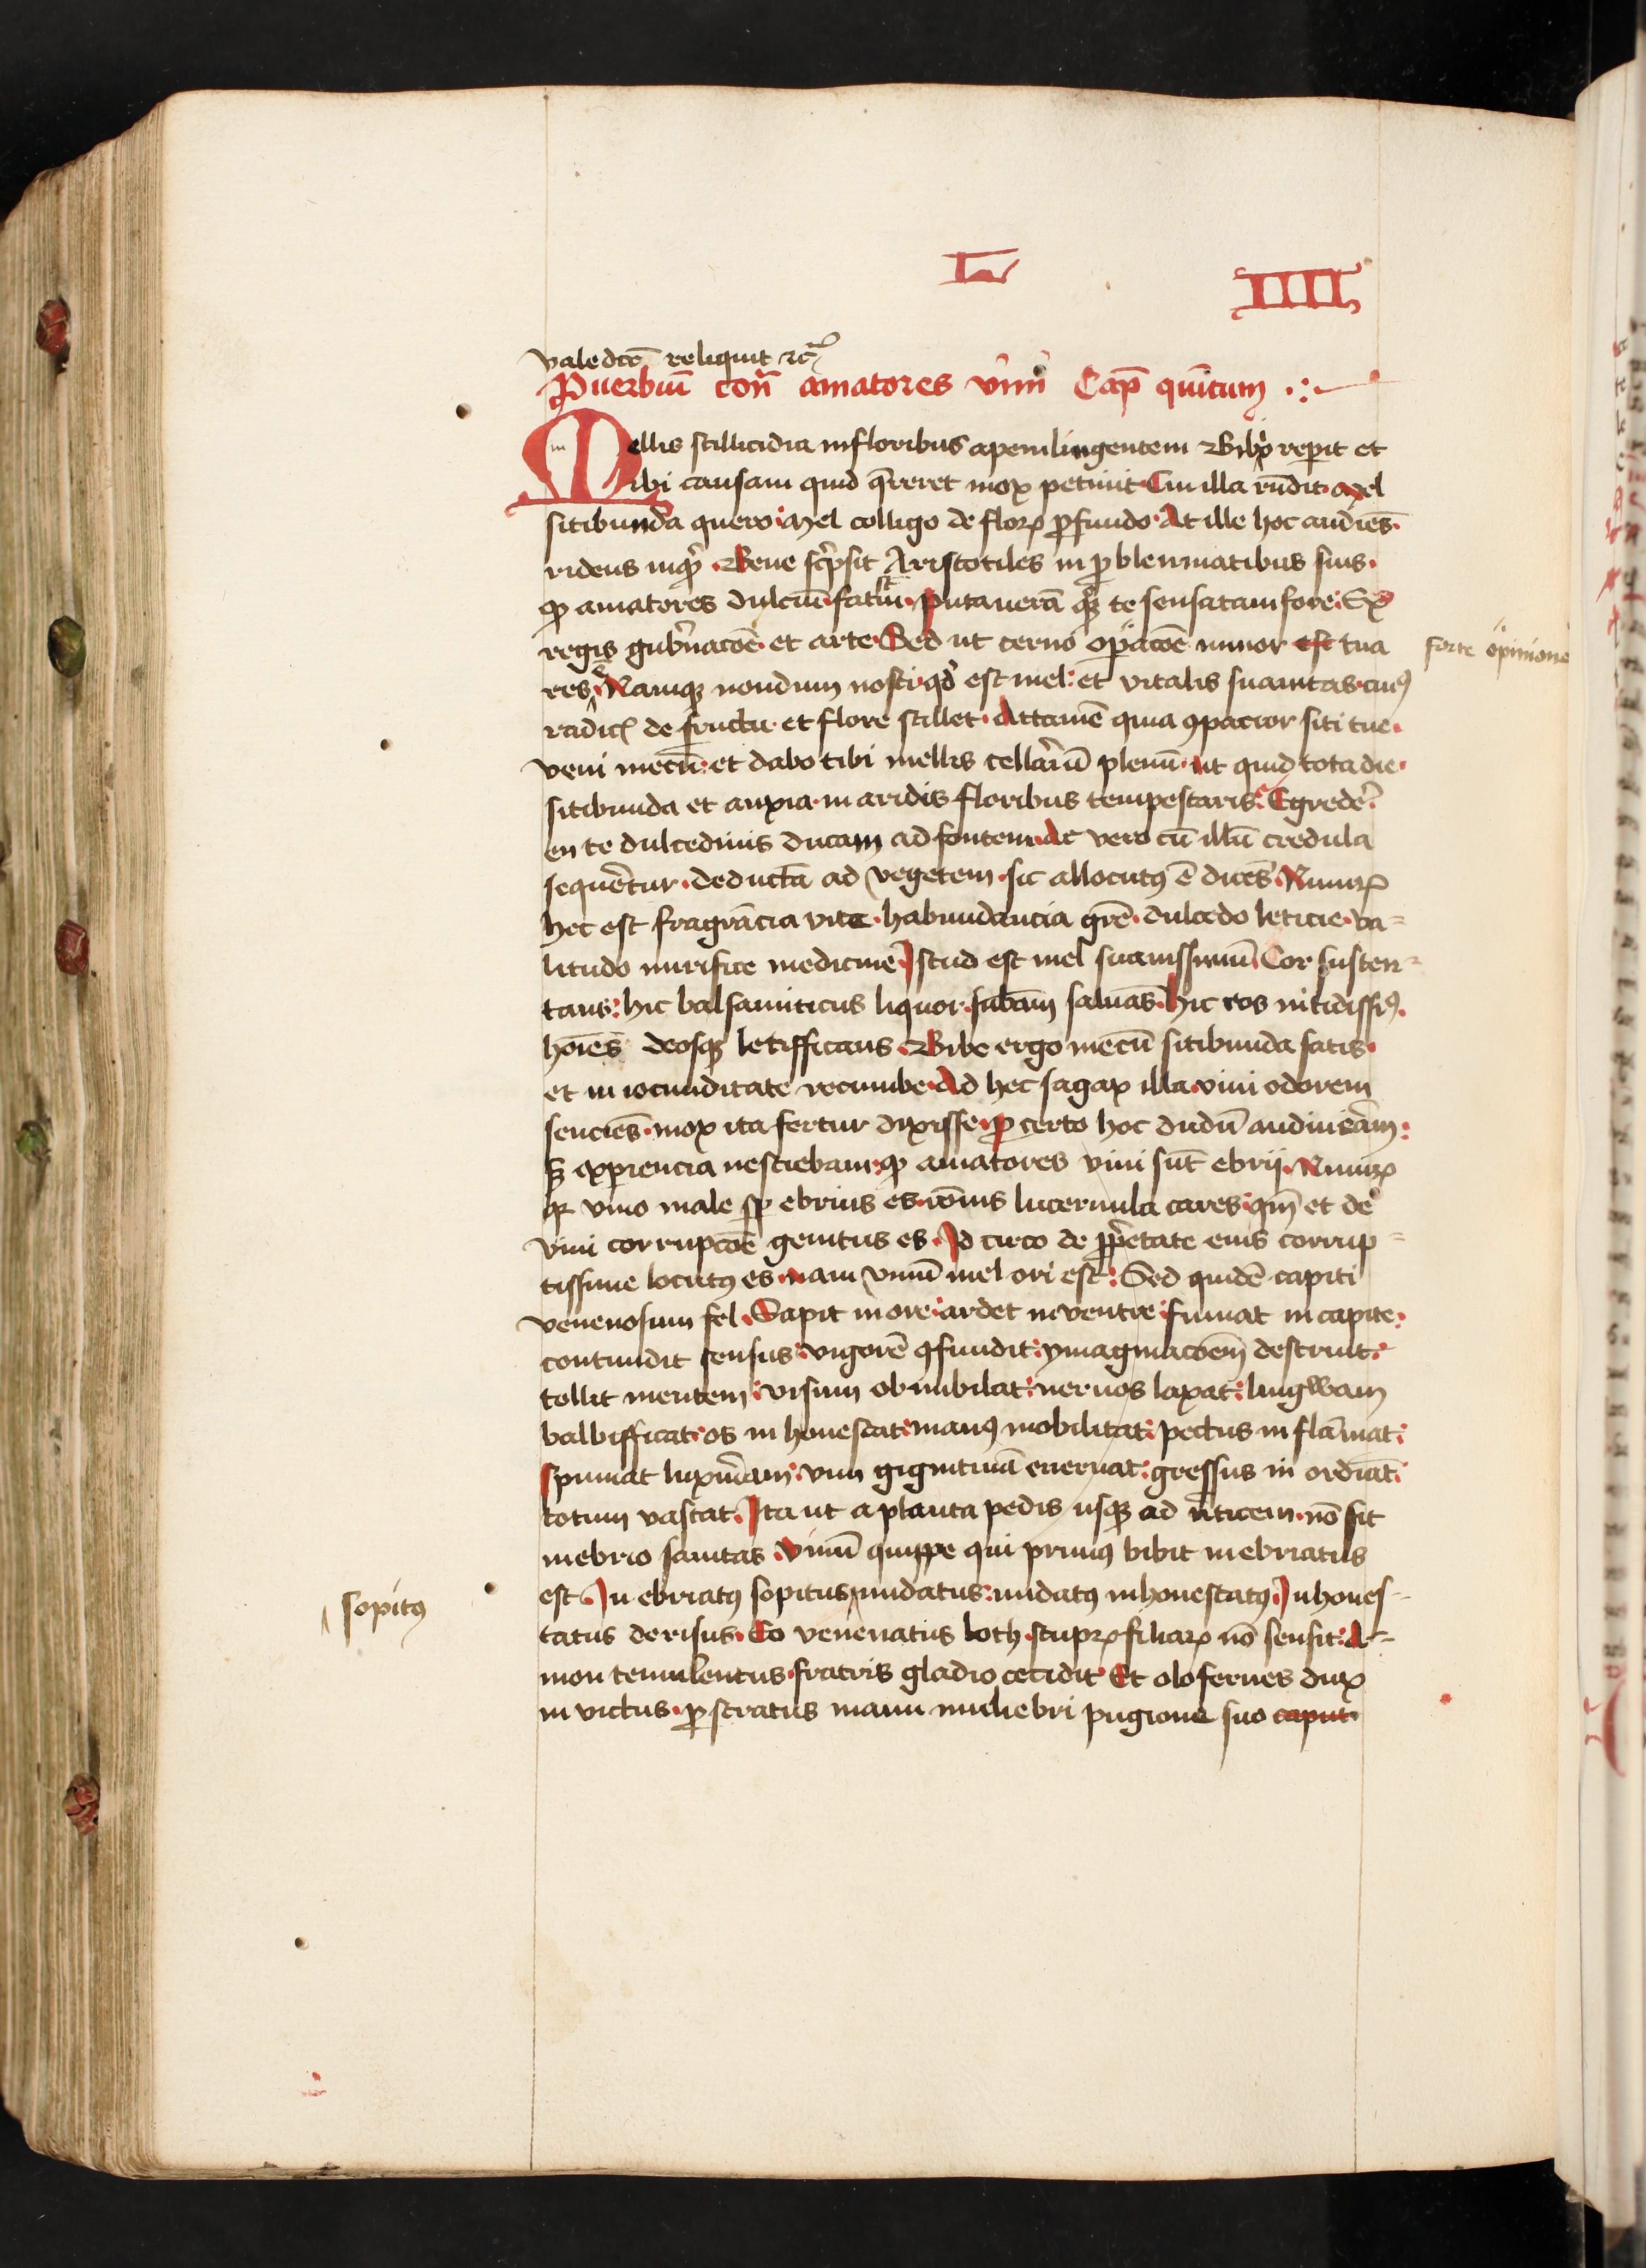 La IIII
valedcō reliquit ꝛcͣ
Ꝓuerbiū con̄ amatores vini Cap̄ quītum
Mellis stillicidia in floribus apem lingentem Bibo reperit et
ibi causam quid q̄reret mox petiuit Cui illa rn̄dit mel
sitibunda quero mel colligo de floꝝ ꝓfundo At ille hoc audiēs
ridens inqͥt Bene scͥpsit Aristotiles in ꝓbleumatibus suis
ꝙ amatores dulciū fatui st̄ putauerā qͥꝫ te sensatam fore Ex
regis gub̓nacōe et arte Sed ut cerno oꝑacōe minor est tua
forte opinione
res Namqꝫ nondum nosti qd̓ est mel et vitalis suauitas cuiꝰ
radicꝭ de fructu et flore stillet Attamē quia ꝯpacior siti tue
veni mecū et dabo tibi mellis cellariū plenū ut quid tota die
sitibunda et anxia in aridis floribus tempestaris Egrede͛
en te dulcedinis ducam ad fontem At vero cū illū credula
sequēretur deductā ad vegetem sic allocutꝰ ē dicēs Nimiꝝ
hec est fragrācia vite habundancia grē dulcedo leticie va⸗
litudo mirifice medicine Istud est mel suauissimū Cor susten⸗
tans hic balsamiticus liquor subām saluās hic ros nitidissiꝰ
hoīes deosqꝫ letifficans Bibe ergo mecū sitibunda satis
et in iocunditate recumbe Ad hec sagax illa vini odorem
senciēs mox ita fertur dixisse ꝓ certo hoc dudū audiueram
sꝫ exꝑiencia nesciebam ꝙ amatores vini sūt ebrij Nimiꝝ
qꝛ vino male sꝑ ebrius es rōnis lucernula cares qm̄ et de
vini corrupcōe genitus es Id circo de ꝓpͥetate eius corrup⸗
tissime locutꝰ es nam vinū mel ori est Sed quidē capiti
venenosum fel Sapit in ore ardet in ventre fumat in capite
contundit sensus vigorē ꝯfundit ymaginacōem destruit
tollit mentem visum obnubilat neruos laxat lingwam
balbifficat os in honestat manꝰ mobilitat pectus in flāmat
spumat luxuriam vim gignitiuā eneruat gressus in ordīat
totum vastat Ita ut a planta pedis usqꝫ ad v̓ticem nō sit
in ebrio sanitas Vinū quippe qui primꝰ bibit inebriatus
est In ebriatꝰ sopitus nudatus nudatꝰ inhonestatꝰ In hones⸗
sopitꝰ
tatus derisus Eo venenatus loth stupꝝ filiaꝝ nō sensit A⸗
mon temulentus fratris gladio cecidit Et olofernes dux
in victus ꝓstratus manu muliebri pugione suo caput